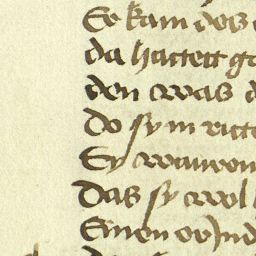 Er kam des
da hattett g
den was d
do sy in ritt
Sy wauron
Das sy wol
Einen